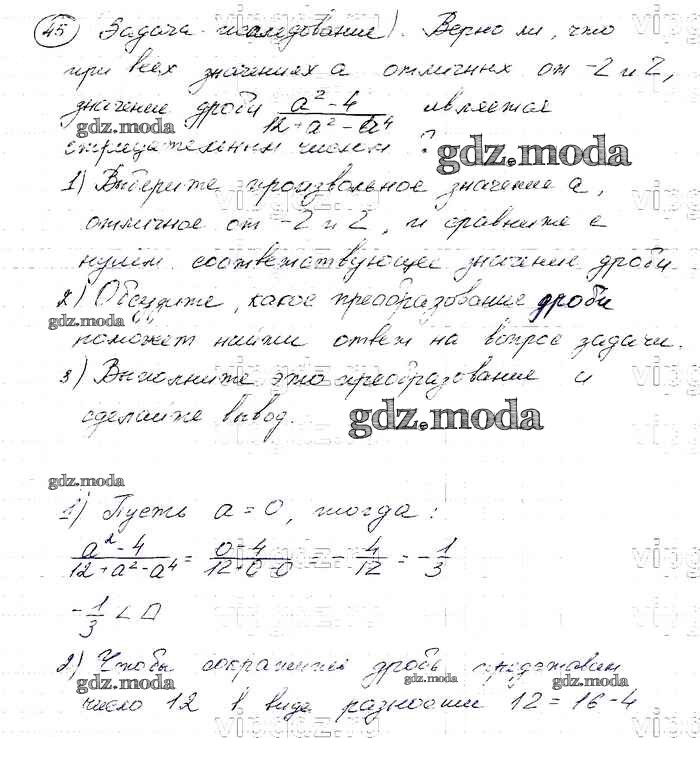 45 Задача-исследование). Верно ли, что
при всех значениях a отличных от -2 и 2,
значение дроби (a² - 4)/(12 + a² - a⁴) является
отрицательным числом ?
1) Выберите произвольное значение a,
отличное от -2 и 2, и сравните с
нулём соответствующее значение дроби
2) Обсудите, какое преобразование дроби
поможет найти ответ на вопрос задачи.
3) Выполните это преобразование и
сделайте вывод.
1) Пусть a = 0, тогда:
(a² - 4)/(12 + a² - a⁴) = (0 - 4)/(12 + 0 - 0) = - 4/12 = - 1/3
- 1/3 < 0
2) Чтобы сократить дробь представим
число 12 в виде разности 12 = 16 - 4
gdz.moda
gdz.moda
gdz.moda
gdz.moda
gdz.moda
gdz.moda
gdz.moda
gdz.moda